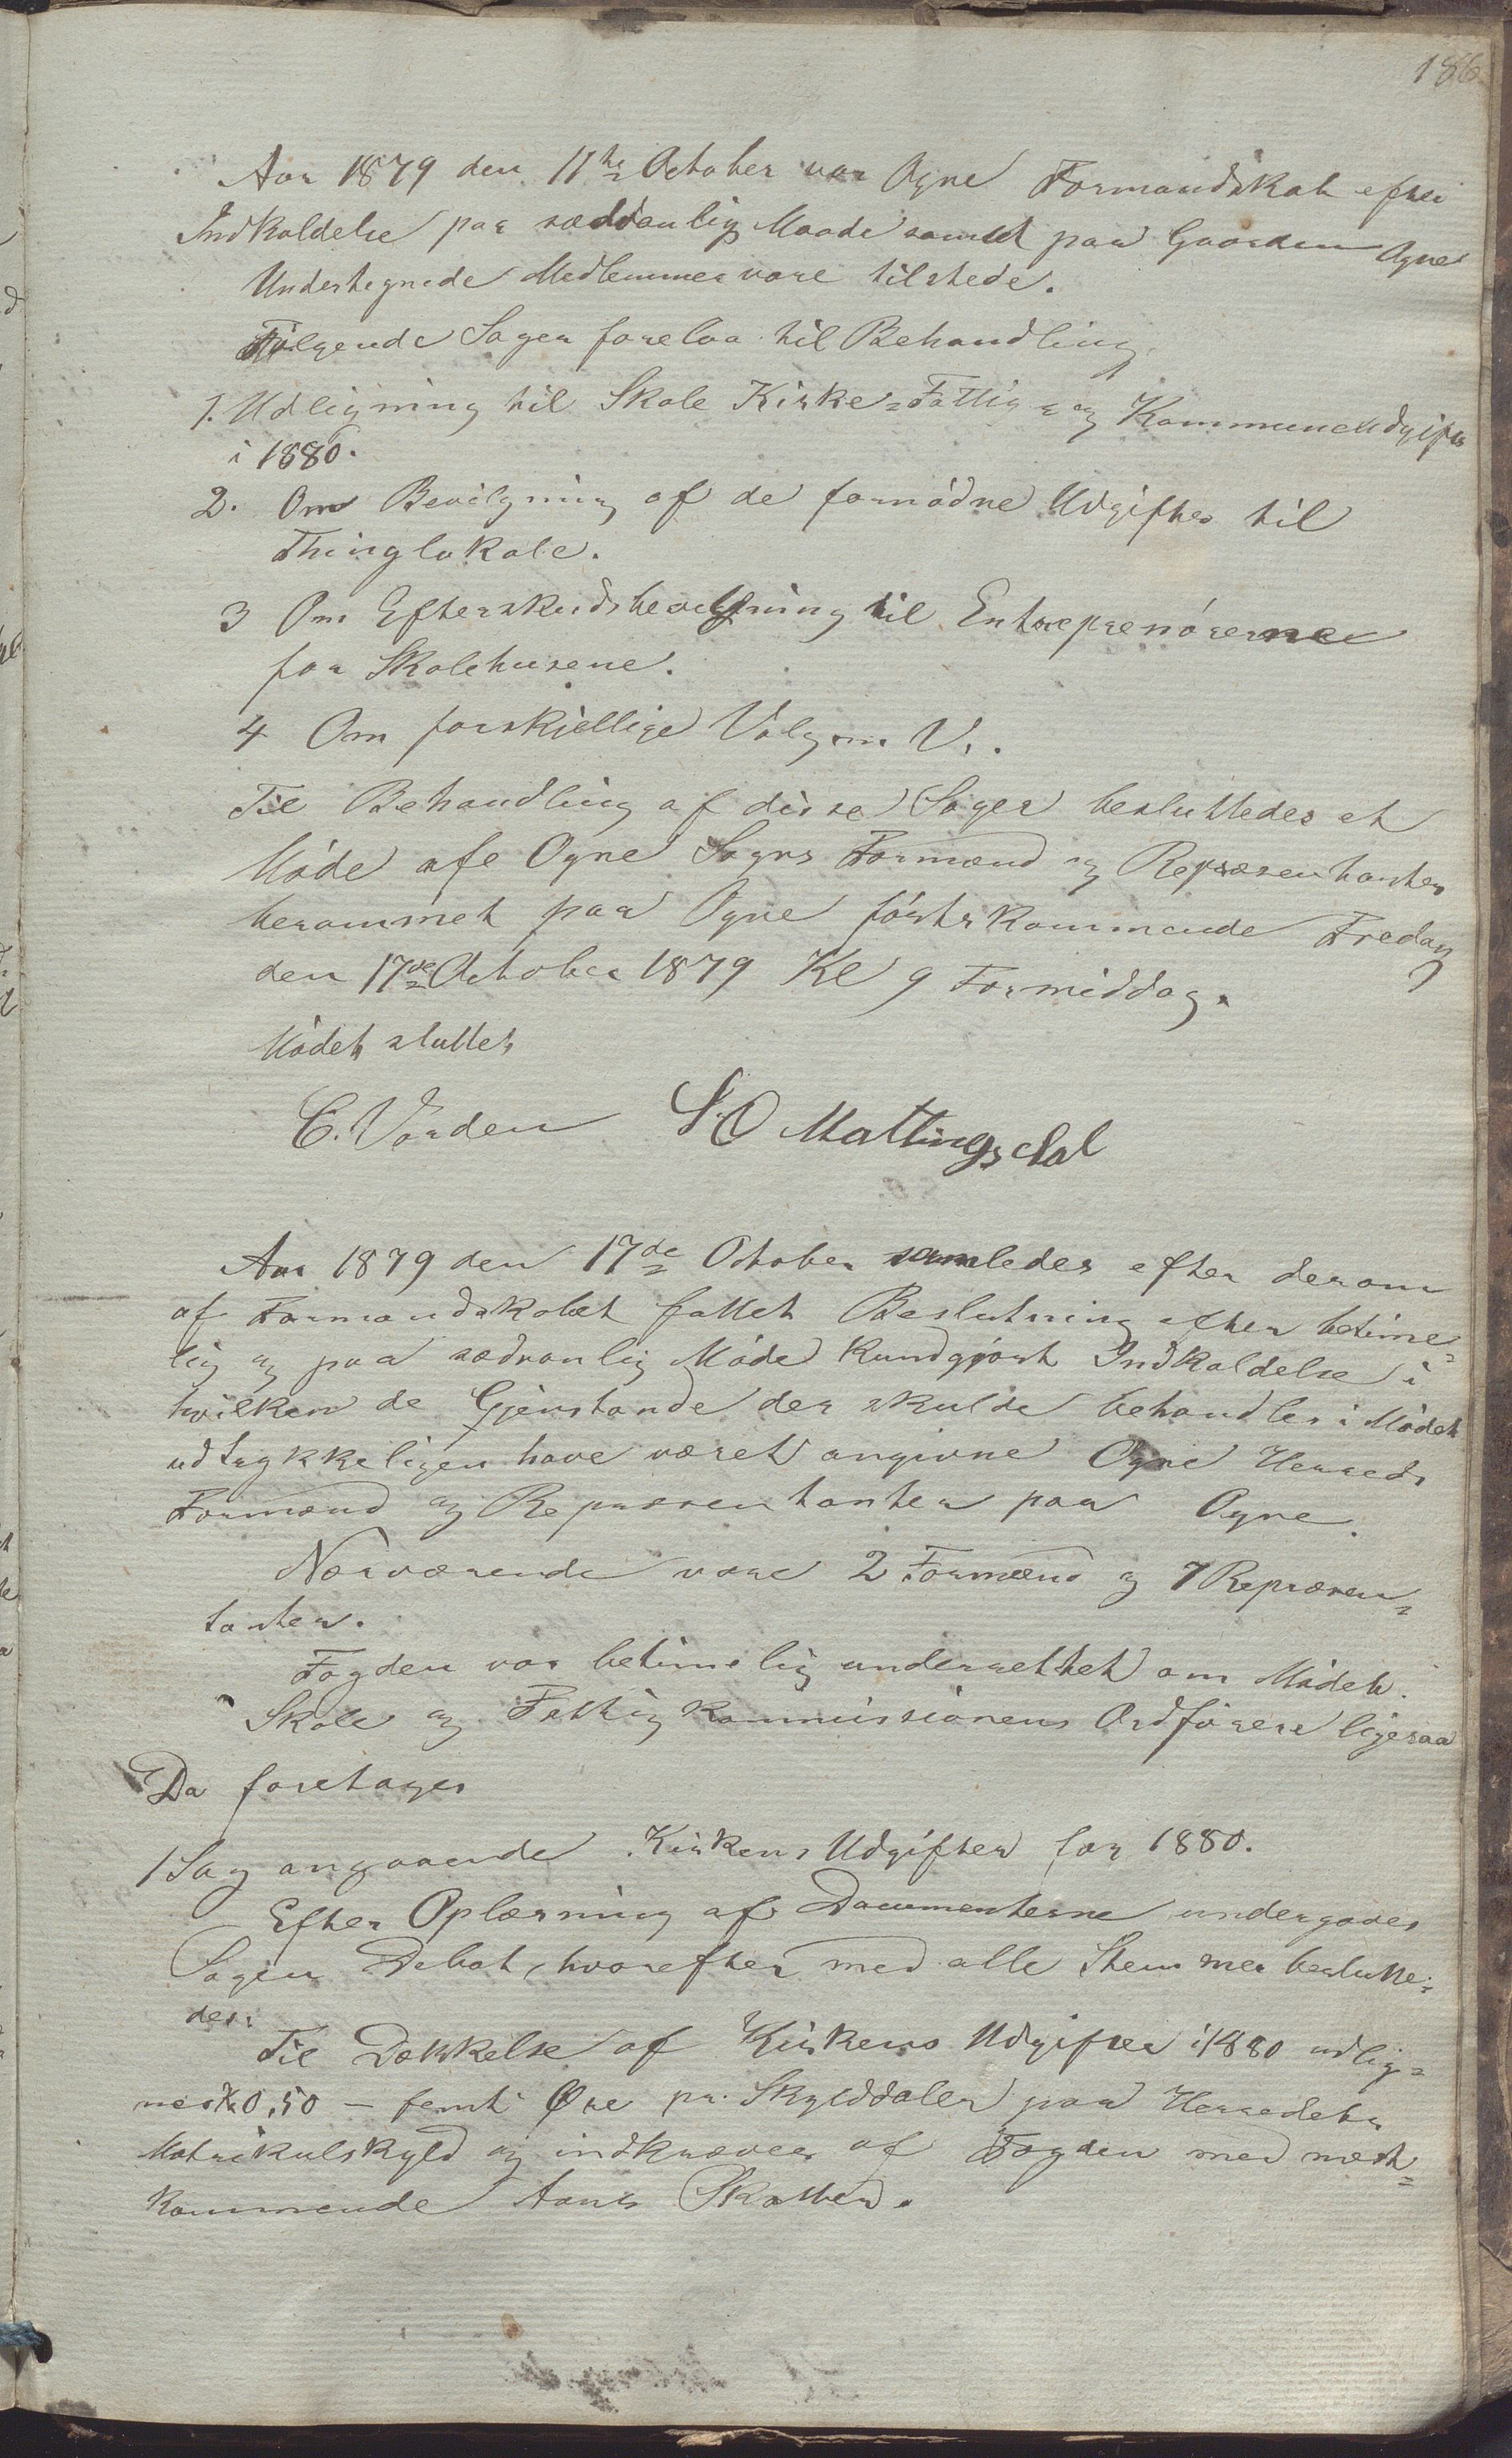 186
Aar 1879 den 11te October var Ogne Formandskab efter
Indkaldelse paa sæddanlig Maade samlet paa Gaarden Ogne
Undertegnede Medlemmer vare tilstede.
Følgende Sager forelaa til Behandling.
1. Udligning til Skole Kirke= Fattig= og Kommuneudgifter
i 1880.
2. Om Bevilgning af de fornödne Udgifter til
Thinglokale.
3 Om Efterskudsbevilgning til Entreprenörerne
for Skolehusene.
4 Om forskjellige Valg m. V..
Til Behandling af disse Sager besluttedes et
Möde afe Ogne Sogns Formænd og Repræsentanter
berammet paa Ogne förstkommende Fredag
den 17de October 1879 Kl 9 Formiddag.
Mödet sluttet
C. Varden S O Mattingsdal
Aar 1879 den 17de October samledes efter derom
af Formandskabet fattet Beslutning efter betime=
lig og paa sædvanlig Möde kundgjort Indkaldelse i
hvilken de Gjenstande der skulde behandles i Mödet
udtrykkeligen have været angivne Ogne Herreds
Formænd og Repræsentanter paa Ogne.
Nærværende vare 2 Formænd og 7 Repræsen=
tanter.
Fogden var betimelig underrettet om Mödet.
Skole og Fattigkommissionens Ordförere ligesaa
Da foretages
1 Sag angaaende Kirkens Udgifter for 1880.
Efter Oplæsning af Documenterne undergaves
Sagen Debat, hvorefter med alle Stemmer beslutte=
des:
Til Dækkelse af Kirkens Udgifter i 1880 udlig=
nes Kr 0,50 – femti Øre pr. Skylddaler paa Herredets
Matrikulskyld og indkræves af Fogden med næst=
kommende Aars Skatter.